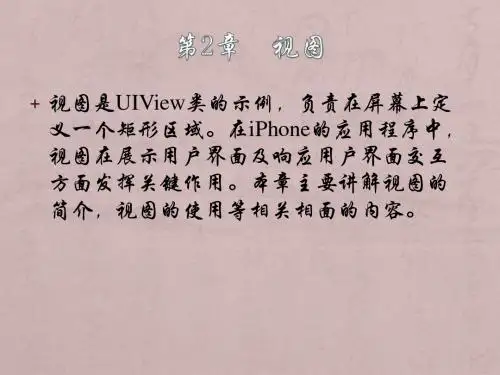 第2章 视图
+ 视图是UIView类的示例，负责在屏幕上定
义一个矩形区域。在iPhone的应用程序中，
视图在展示用户界面及响应用户界面交互
方面发挥关键作用。本章主要讲解视图的
简介，视图的使用等相关相面的内容。